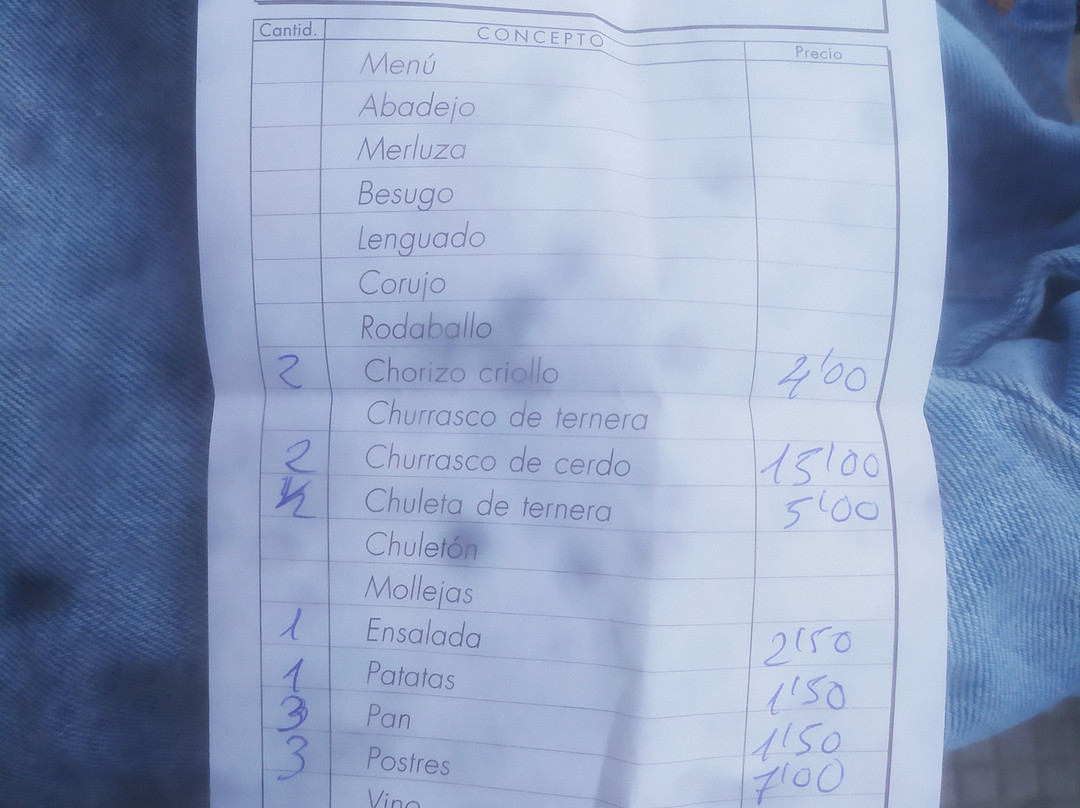 Cantid. CONCEPTO Precio
Menú
Abadejo
Merluza
Besugo
Lenguado
Corujo
Rodaballo
2 Chorizo criollo 4'00
Churrasco de ternera
2 Churrasco de cerdo 15'00
Chuleta de ternera 5'00
Chuletón
Mollejas
1 Ensalada 2'50
1 Patatas 1'50
3 Pan 1'50
3 Postres 7'00
Vino